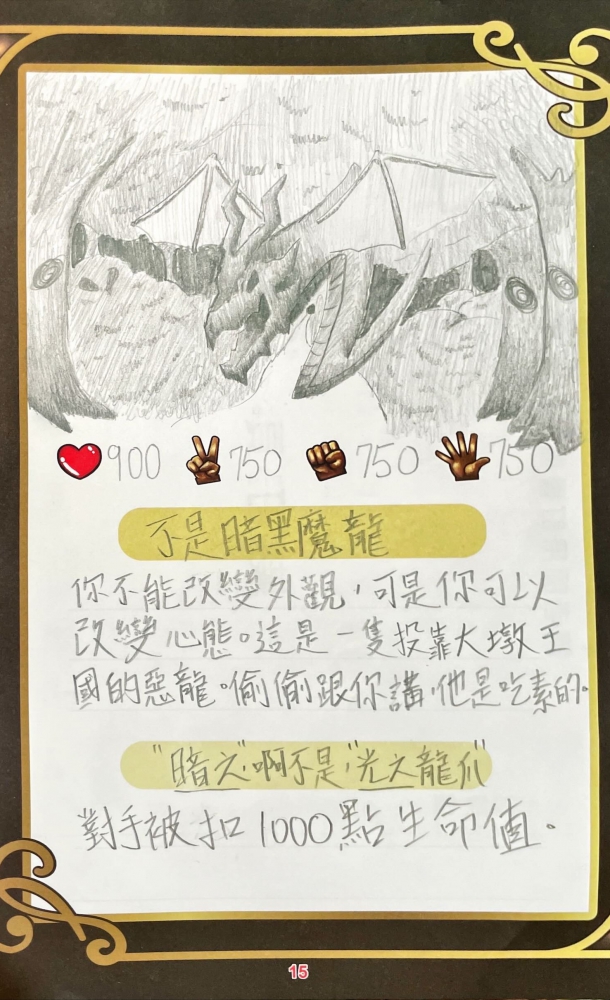 900 750 750 750
不是暗黑魔龍
你不能改變外觀，可是你可以
改變心態。這是一隻投靠大墩王
國的惡龍。偷偷跟你講，他是吃素的。
"暗之"啊不是，"光之龍爪"
對手被扣1000點生命值。
15